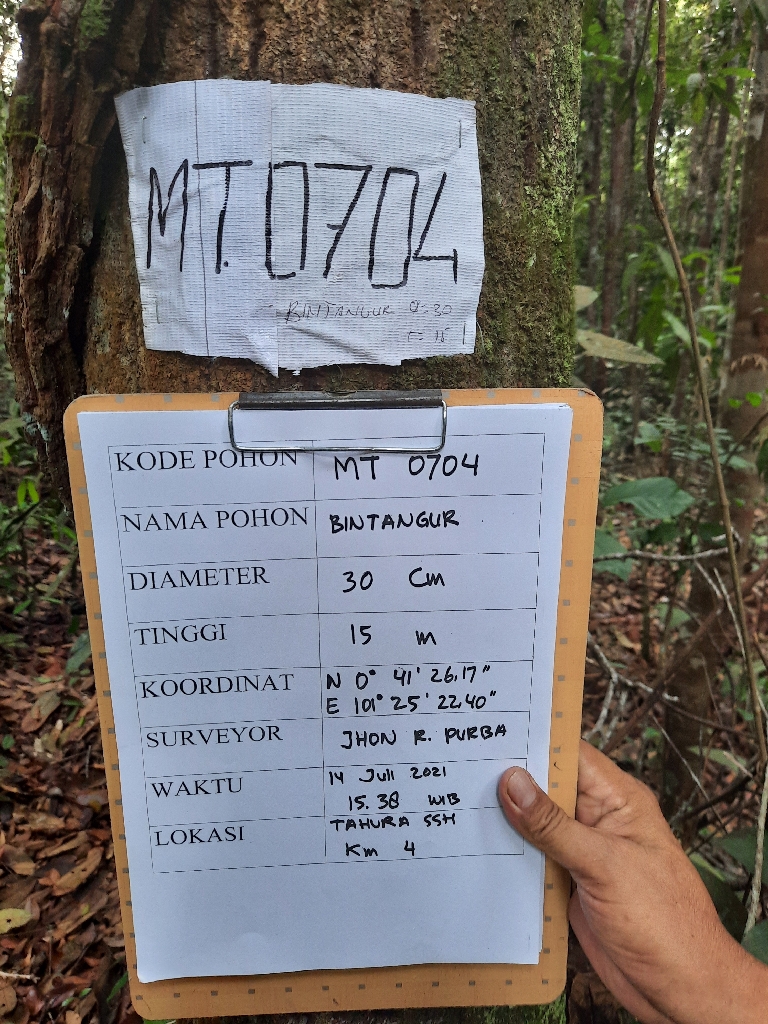 MT.0704
BINTANGUR D=30
T=15
KODE POHON MT 0704
NAMA POHON BINTANGUR
DIAMETER 30 Cm
TINGGI 15 m
KOORDINAT N 0° 41' 26,17"
E 101° 25' 22,40"
SURVEYOR JHON R. PURBA
WAKTU 14 Juli 2021
15.38 WIB
LOKASI TAHURA SSH
Km 4